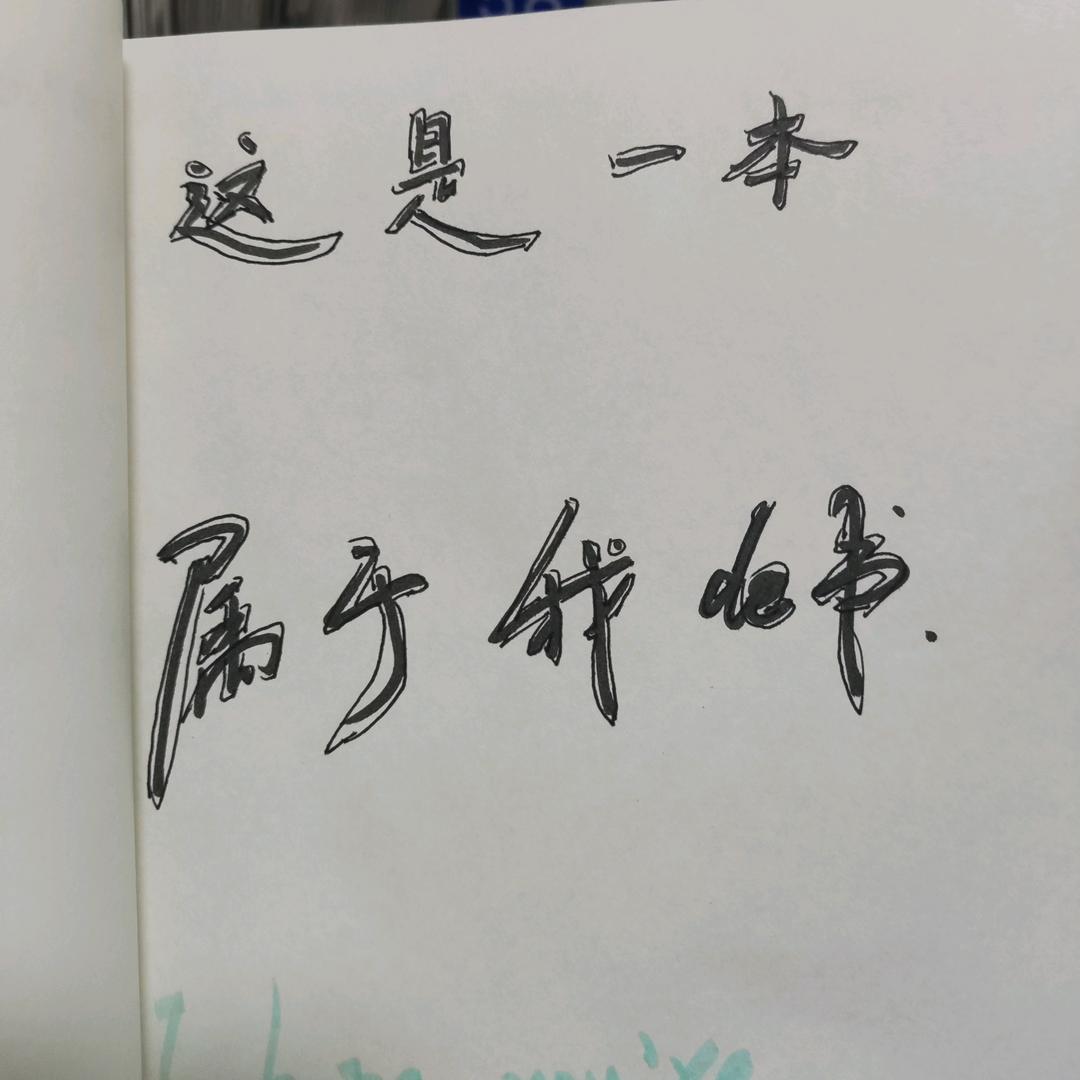 这是一本
属于我de书.